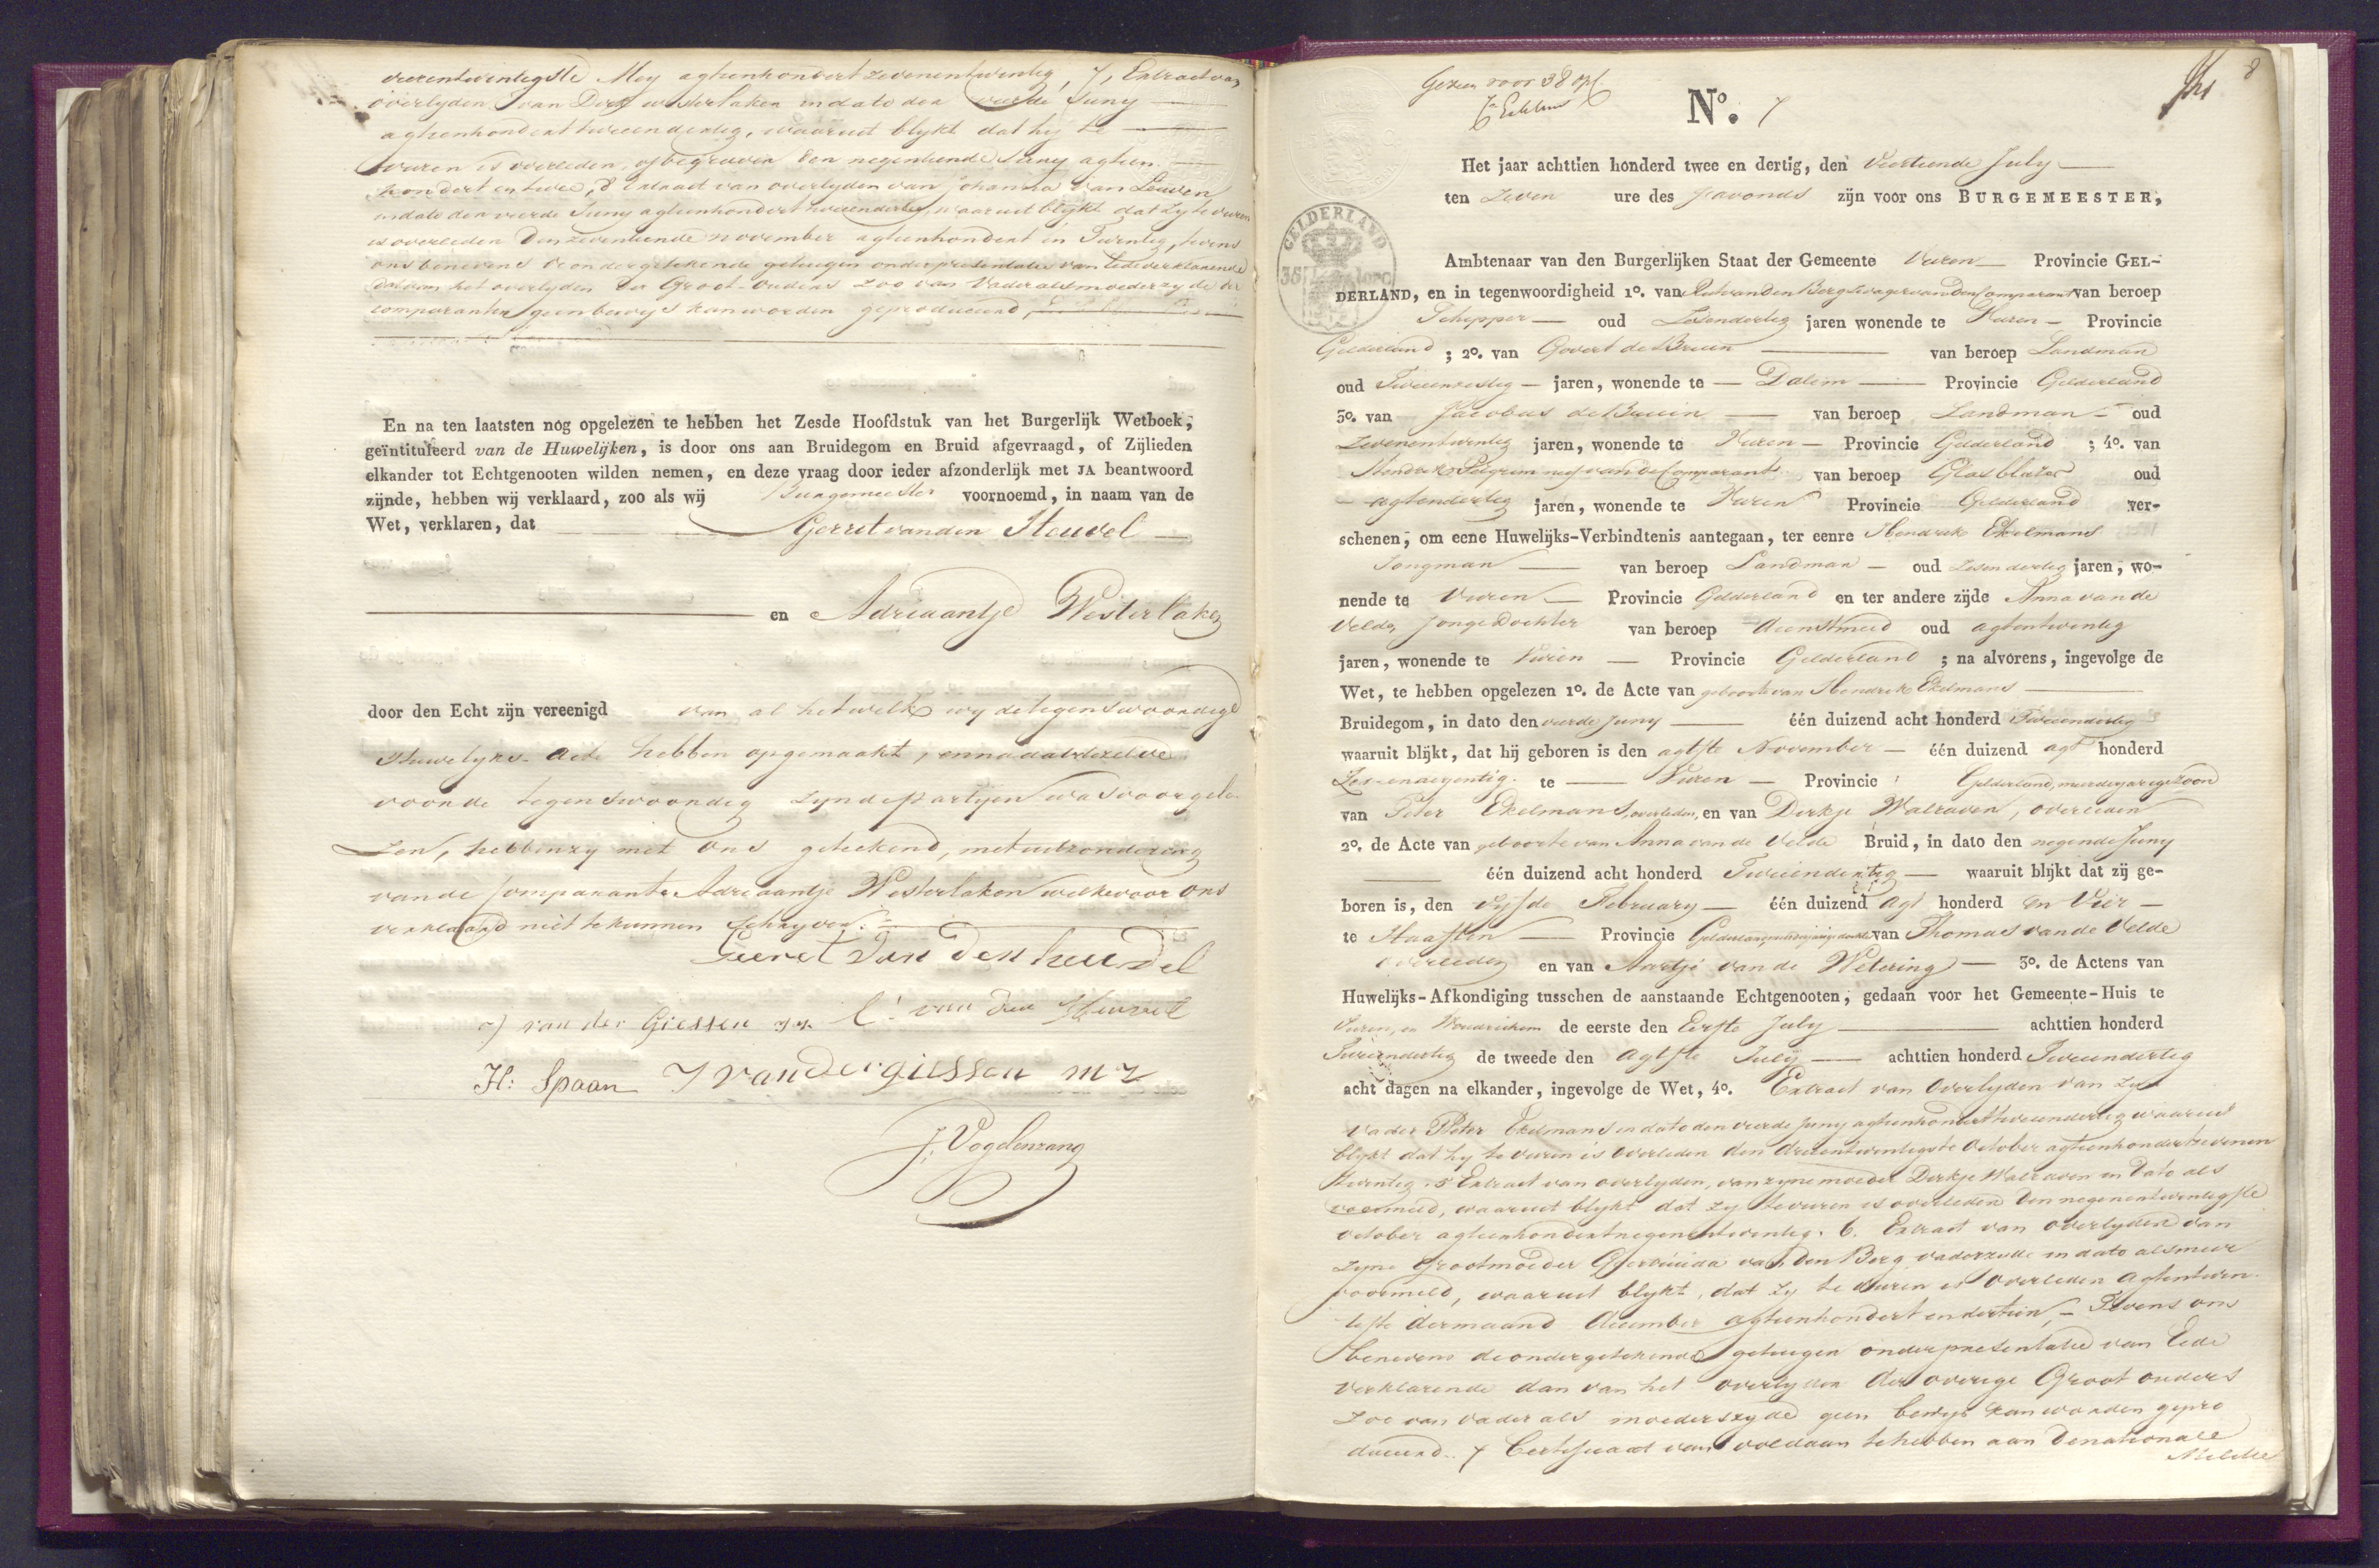 vierentwintigste Mey agtienhondert zevenentwintig, 7, Extract van
overlyden van Dirk westerlaken indato den vierde Juny
agtienhondert tweeendertig, waaruit blykt dat hy te
vuren is overleden, of begraven den negentiende Juny agtien
hondert en twee, 8 Extract van overlyden van Johanna van Leuven
indato den vierde Juny agtienhondert tweeendertig, waaruit blykt dat zy te vuren
is overleden den zeventiende november agtienhondert en Twintig, tevens
ons benevens de ondergetekende getuigen onder presentatie van Eede verklarende
dat van het overlyden der Groot-ouders zoo van Vader als moederzyde der
comparanten geen bewys kan worden geproduceerd,
En na ten laatsten nog opgelezen te hebben het Zesde Hoofdstuk van het Burgerlijk Wetboek,
geïntituleerd van de Huwelijken, is door ons aan Bruidegom en Bruid afgevraagd, of Zijlieden
elkander tot Echtgenooten wilden nemen, en deze vraag door ieder afzonderlijk met JA beantwoord
zijnde, hebben wij verklaard, zoo als wij Burgemeester voornoemd, in naam van de
Wet, verklaren, dat Gerrit van den Heuvel
en Adriaantje Westerlaken
door den Echt zijn vereenigd van al hetwelk wy de tegenswoordige
Huwelyks-Acte hebben opgemaakt, en na dat dezelve
voor de tegenswoordig zynde partyen was voorgele
zen, hebben zy met Ons geteekend, met uitzondering
van de Comparante Adriaantje Westerlaken welke voor Ons
verklaard niet te kunnen schryven.
Geeret van den heuvel
van der Giessen C: van den Heuvel
H: Spaan J van der giessen mz
J. Vogelenzang
Gezien voor 38
8
No. 7
Het jaar achttien honderd twee en dertig, den Viertiende July
ten Zeven ure des s'avonds zijn voor ons BURGEMEESTER,
GELDERLAND
Ambtenaar van den Burgerlijken Staat der Gemeente Vuren Provincie GEL-
DERLAND, en in tegenwoordigheid 1o. van Rut van den Berg Swager van den Comparant van beroep
Schipper oud Zesendertig jaren wonende te Vuren Provincie
Gelderland ; 2o. van Govert de Bruin van beroep Landman
oud Tweeenzestig jaren, wonende te Dalem Provincie Gelderland
3o. van Jacobus de Bruin van beroep Landman oud
Zevenentwintig jaren, wonende te Vuren Provincie Gelderland ; 4o. van
Hendrik Pelgrim neef van de Comparant van beroep Glasblazer oud
agtendertig jaren, wonende te Vuren Provincie Gelderland ver-
schenen, om eene Huwelijks-Verbindtenis aantegaan, ter eenre Hendrik Ekelmans
Jongman van beroep Landman oud Zesendertig jaren, wo-
nende te Vuren Provincie Gelderland en ter andere zijde Anna van de
Velde, Jonge Dochter van beroep dienstmeid oud agtentwintig
jaren, wonende te Vuren Provincie Gelderland ; na alvorens, ingevolge de
Wet, te hebben opgelezen 1o. de Acte van geboorte van Hendrik Ekelmans
Bruidegom, in dato den vierde Juny één duizend acht honderd Tweeendertig
waaruit blijkt, dat hij geboren is den agtste November één duizend agt honderd
Zes-ennegentig te Vuren Provincie Gelderland, meerderjarige Zoon
van Peter Ekelmans, overleden, en van Dirkje Walraven, overleden
2o. de Acte van geboorte van Anna van de Velde Bruid, in dato den negende Juny
één duizend acht honderd Tweeendertig waaruit blijkt dat zij ge-
boren is, den vyfde February één duizend agt honderd en Vier
te Haaften Provincie Gelderland meerderjarige dochter van Thomas van de Velde
overleden en van Aartje van de Wetering 3o. de Actens van
Huwelijks-Afkondiging tusschen de aanstaande Echtgenooten, gedaan voor het Gemeente-Huis te
Vuren, en Woudrichem de eerste den Eerste July achttien honderd
Tweeendertig de tweede den agtste July achttien honderd Tweeendertig
acht dagen na elkander, ingevolge de Wet, 4o. Extract van Overlyden van zyn
vader Peter Ekelmans in dato den vierde Juny agtienhondert tweeendertig waaruit
blykt dat hy te vuren is overleden den drieentwintigste October agtienhondert zevenen
twintig. 5 Extract van overlyden, van zyne moeder Dirkje Walraven in dato als
voormeld, waaruit blykt dat zy te vuren is overleden den negenentwintigste
october agtienhondert negenentwintig. 6. Extract van overlyden van
zyne Grootmoeder Geertruida van den Berg vaderzyde in dato als meer
voormeld, waaruit blykt, dat zy te vuren is overleden agtentwin
tigste dermaand december agtienhondert en dertien, Tevens ons
benevens de ondergetekende getuigen onder presentatie van Eede
verklarende dan van het overlyden der overige Groot ouders
zoo van vader als moederszyde geen bewys kan worden gepro
duceerd. 7 Certificaat van voldaan te hebben aan de nationale
Militie